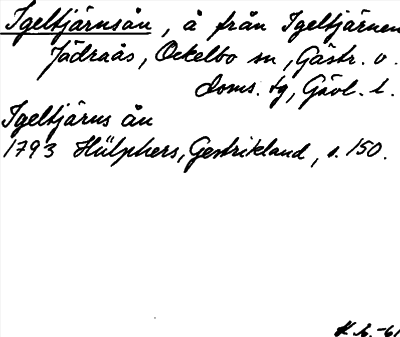 Igeltjärnsån, å från Igeltjärnen
Jädraås, Ockelbo sn, Gästr. o.
doms. tg, Gävl. l.
Igeltjärns ån
1793 Hülphers, Gestrikland, s. 150.
K.L.-61